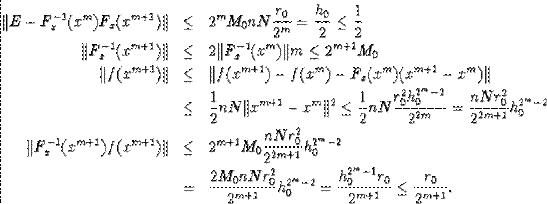 ‖E − F_x^{-1}(x^m)F_x(x^{m+1})‖ ≤ 2^m M_0 nN \frac{r_0}{2^m} = \frac{h_0}{2} ≤ \frac{1}{2}
‖F_x^{-1}(x^{m+1})‖ ≤ 2‖F_x^{-1}(x^m)‖m ≤ 2^{m+1}M_0
‖f(x^{m+1})‖ ≤ ‖f(x^{m+1}) − f(x^m) − F_x(x^m)(x^{m+1} − x^m)‖
≤ \frac{1}{2}nN‖x^{m+1} − x^m‖^2 ≤ \frac{1}{2}nN\frac{r_0^2 h_0^{2^m−2}}{2^{2m}} = \frac{nNr_0^2}{2^{2m+1}}h_0^{2^m−2}
‖F_x^{-1}(x^{m+1})f(x^{m+1})‖ ≤ 2^{m+1}M_0\frac{nNr_0^2}{2^{2m+1}}h_0^{2^m−2}
= \frac{2M_0nNr_0^2}{2^{m+1}}h_0^{2^m−2} = \frac{h_0^{2^m−1}r_0}{2^{m+1}} ≤ \frac{r_0}{2^{m+1}}.